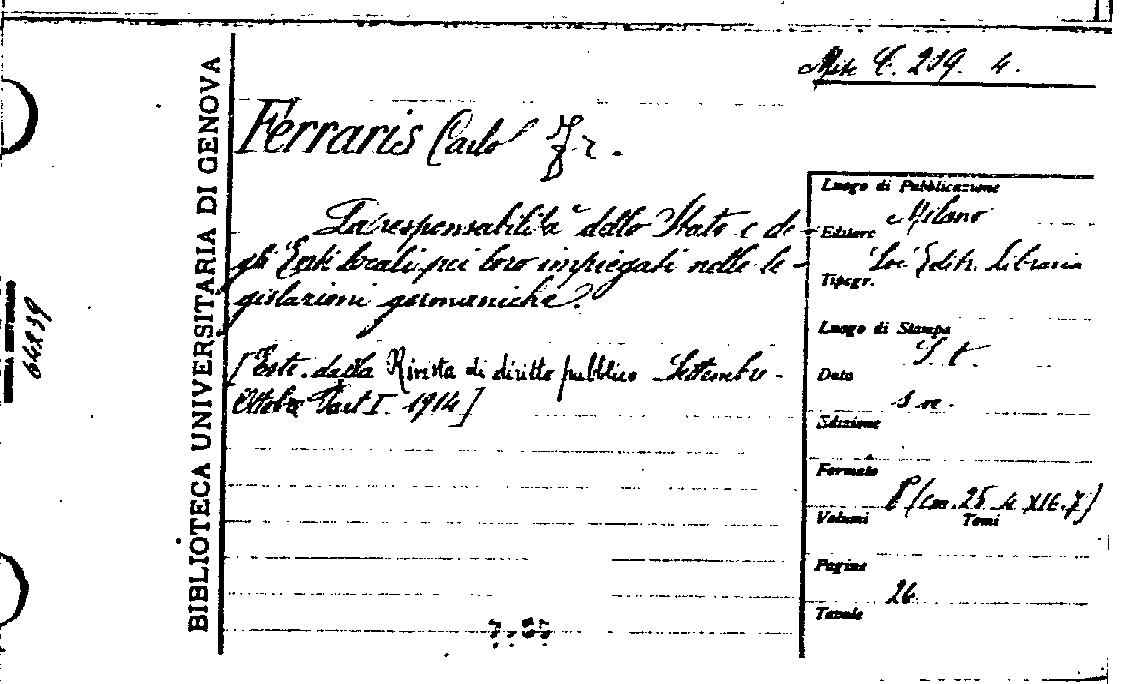 Misc C. 209. 4.
BIBLIOTECA UNIVERSITARIA DI GENOVA
64839
Ferraris Carlo Fr.
La responsabilità dello Stato e de-
gli Enti locali pei loro impiegati nelle le-
gislazioni germaniche.
[Estr. dalla Rivista di diritto pubblico Settembre-
Ottobre Part I. 1914]
Luogo di Pubblicazione
Milano
Editore
Soc. Editr. Libraria
Tipogr.
Luogo di Stampa
S. t.
Data
s. n.
Edizione
Formato
8° (cm. 25
Volumi
Tomi
Pagine
26
Tavole